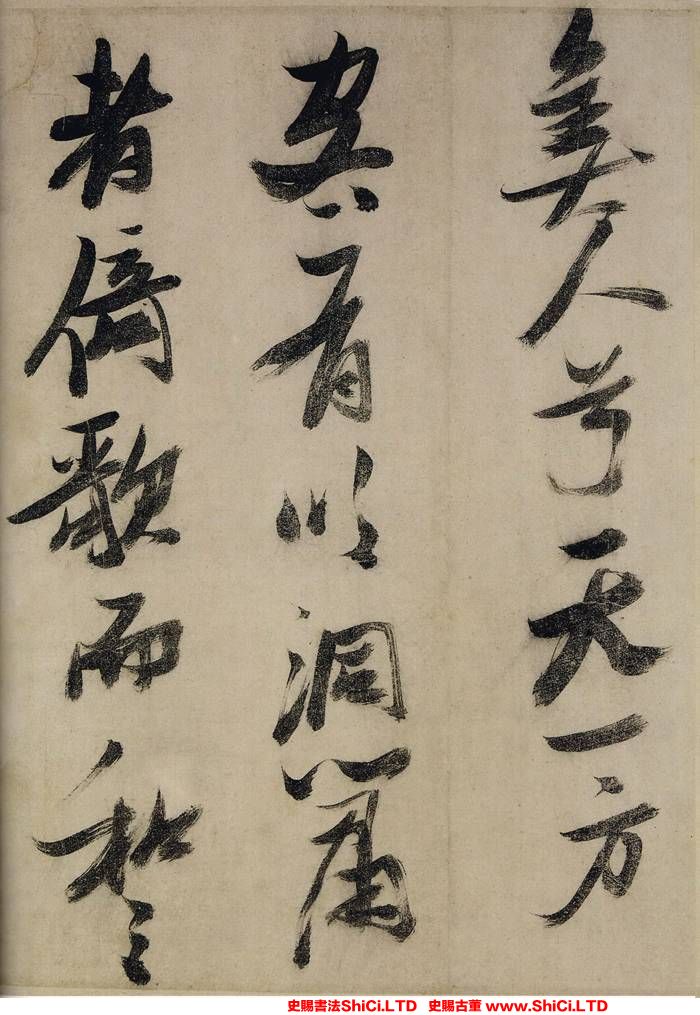 美人兮天一方
客有吹洞簫
者倚歌而和之
史賜書法ShiCi.LTD 史賜古董 www.ShiCi.LTD